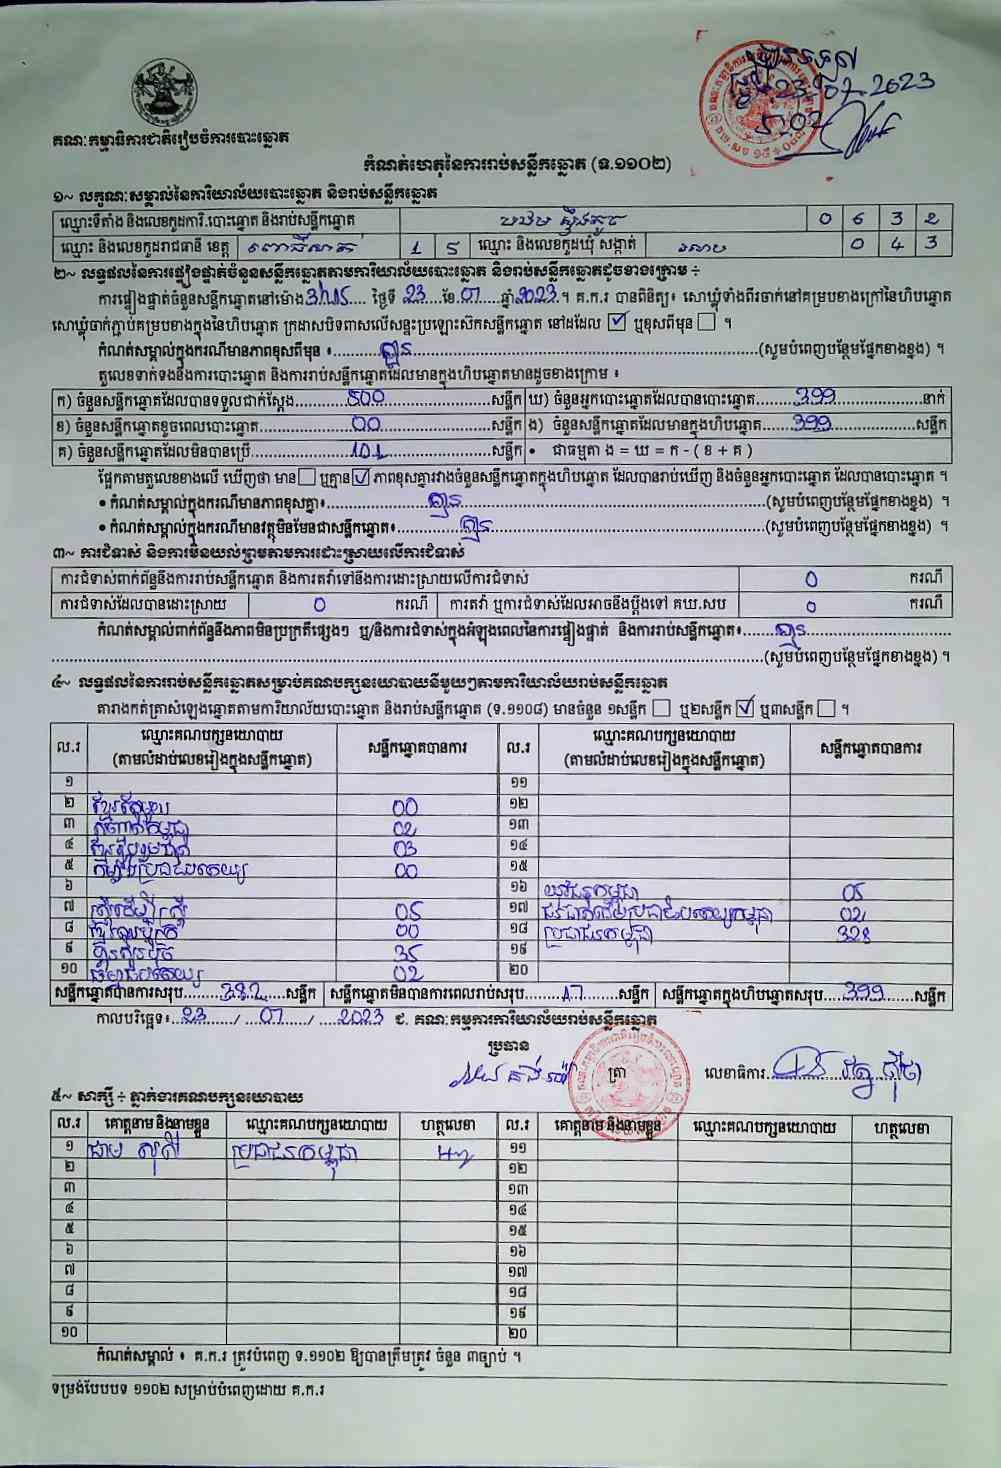 23.07.2023
គណៈកម្មាធិការជាតិរៀបចំការបោះឆ្នោត
កំណត់ហេតុនៃការរាប់សន្លឹកឆ្នោត (ទ.១១០២)
១~ លក្ខណៈសម្គាល់នៃការិយាល័យបោះឆ្នោត និងរាប់សន្លឹកឆ្នោត
ឈ្មោះទីតាំង និងលេខកូដការិ.បោះឆ្នោត និងរាប់សន្លឹកឆ្នោត 0 6 3 2
ឈ្មោះ និងលេខកូដរាជធានី ខេត្ត ពោធិ៍សាត់ 1 5 ឈ្មោះ និងលេខកូដឃុំ សង្កាត់ 0 4 3
២~ លទ្ធផលនៃការផ្ទៀងផ្ទាត់ចំនួនសន្លឹកឆ្នោតតាមការិយាល័យបោះឆ្នោត និងរាប់សន្លឹកឆ្នោតដូចខាងក្រោម ÷
ការផ្ទៀងផ្ទាត់ចំនួនសន្លឹកឆ្នោតនៅម៉ោង ថ្ងៃទី 23 ខែ 07 ឆ្នាំ 2023 ។ គ.ក.រ បានពិនិត្យ៖ សោឃ្លុំទាំងពីរចាក់នៅគម្របខាងក្រៅនៃហិបឆ្នោត
សោឃ្លុំចាក់ភ្ជាប់គម្របខាងក្នុងនៃហិបឆ្នោត ក្រដាសបិទពាសលើសន្ទះប្រឡោះស៊កសន្លឹកឆ្នោត នៅដដែល ☑ ឬខុសពីមុន ☐ ។
កំណត់សម្គាល់ក្នុងករណីមានភាពខុសពីមុន ៖ គ្មាន (សូមបំពេញបន្ថែមផ្នែកខាងខ្នង) ។
តួលេខទាក់ទងនឹងការបោះឆ្នោត និងការរាប់សន្លឹកឆ្នោតដែលមានក្នុងហិបឆ្នោតមានដូចខាងក្រោម ៖
ក) ចំនួនសន្លឹកឆ្នោតដែលបានទទួលជាក់ស្តែង 500 សន្លឹក ឃ) ចំនួនអ្នកបោះឆ្នោតដែលបានបោះឆ្នោត 399 នាក់
ខ) ចំនួនសន្លឹកឆ្នោតខូចពេលបោះឆ្នោត 00 សន្លឹក ង) ចំនួនសន្លឹកឆ្នោតដែលមានក្នុងហិបឆ្នោត 399 សន្លឹក
គ) ចំនួនសន្លឹកឆ្នោតដែលមិនបានប្រើ 101 សន្លឹក • ជាធម្មតា ង = ឃ = ក - ( ខ + គ )
ផ្អែកតាមតួលេខខាងលើ ឃើញថា មាន ☐ ឬគ្មាន ☑ ភាពខុសគ្នារវាងចំនួនសន្លឹកឆ្នោតក្នុងហិបឆ្នោត ដែលបានរាប់ឃើញ និងចំនួនអ្នកបោះឆ្នោត ដែលបានបោះឆ្នោត ។
• កំណត់សម្គាល់ក្នុងករណីមានភាពខុសគ្នា៖ គ្មាន (សូមបំពេញបន្ថែមផ្នែកខាងខ្នង) ។
• កំណត់សម្គាល់ក្នុងករណីមានវត្ថុមិនមែនជាសន្លឹកឆ្នោត៖ គ្មាន (សូមបំពេញបន្ថែមផ្នែកខាងខ្នង) ។
៣~ ការជំទាស់ និងការមិនយល់ព្រមតាមការដោះស្រាយលើការជំទាស់
ការជំទាស់ពាក់ព័ន្ធនឹងការរាប់សន្លឹកឆ្នោត និងការតវ៉ាទៅនឹងការដោះស្រាយលើការជំទាស់ 0 ករណី
ការជំទាស់ដែលបានដោះស្រាយ 0 ករណី ការតវ៉ា ឬការជំទាស់ដែលអាចនឹងប្តឹងទៅ គឃ.សប 0 ករណី
កំណត់សម្គាល់ពាក់ព័ន្ធនឹងភាពមិនប្រក្រតីផ្សេងៗ ឬ/និងការជំទាស់ក្នុងអំឡុងពេលនៃការផ្ទៀងផ្ទាត់ និងការរាប់សន្លឹកឆ្នោត៖ គ្មាន
(សូមបំពេញបន្ថែមផ្នែកខាងខ្នង) ។
៤~ លទ្ធផលនៃការរាប់សន្លឹកឆ្នោតសម្រាប់គណបក្សនយោបាយនីមួយៗតាមការិយាល័យរាប់សន្លឹកឆ្នោត
តារាងកត់ត្រាសំឡេងឆ្នោតតាមការិយាល័យបោះឆ្នោត និងរាប់សន្លឹកឆ្នោត (ទ.១១០៨) មានចំនួន ១សន្លឹក ☐ ឬ២សន្លឹក ☑ ឬ៣សន្លឹក ☐ ។
ល.រ ឈ្មោះគណបក្សនយោបាយ (តាមលំដាប់លេខរៀងក្នុងសន្លឹកឆ្នោត) សន្លឹកឆ្នោតបានការ ល.រ ឈ្មោះគណបក្សនយោបាយ (តាមលំដាប់លេខរៀងក្នុងសន្លឹកឆ្នោត) សន្លឹកឆ្នោតបានការ
១ ១១
២ ខ្មែរតែមួយ 00 ១២
៣ 02 ១៣
៤ 03 ១៤
៥ 00 ១៥
៦ ១៦ យុវជនកម្ពុជា 05
៧ ស្ត្រីដើម្បីស្ត្រី 05 ១៧ 02
៨ 00 ១៨ ប្រជាជនកម្ពុជា 328
៩ 35 ១៩
១០ ធម្មាធិបតេយ្យ 02 ២០
សន្លឹកឆ្នោតបានការសរុប 382 សន្លឹក សន្លឹកឆ្នោតមិនបានការពេលរាប់សរុប 17 សន្លឹក សន្លឹកឆ្នោតក្នុងហិបឆ្នោតសរុប 399 សន្លឹក
កាលបរិច្ឆេទ៖ 23 / 07 / 2023 ជ. គណៈកម្មការការិយាល័យរាប់សន្លឹកឆ្នោត
ប្រធាន
ត្រា លេខាធិការ
៥~ សាក្សី ÷ ភ្នាក់ងារគណបក្សនយោបាយ
ល.រ គោត្តនាម និងនាមខ្លួន ឈ្មោះគណបក្សនយោបាយ ហត្ថលេខា ល.រ គោត្តនាម និងនាមខ្លួន ឈ្មោះគណបក្សនយោបាយ ហត្ថលេខា
១ ប្រជាជនកម្ពុជា ១១
២ ១២
៣ ១៣
៤ ១៤
៥ ១៥
៦ ១៦
៧ ១៧
៨ ១៨
៩ ១៩
១០ ២០
កំណត់សម្គាល់ ៖ គ.ក.រ ត្រូវបំពេញ ទ.១១០២ ឱ្យបានត្រឹមត្រូវ ចំនួន ៣ច្បាប់ ។
ទម្រង់បែបបទ ១១០២ សម្រាប់បំពេញដោយ គ.ក.រ